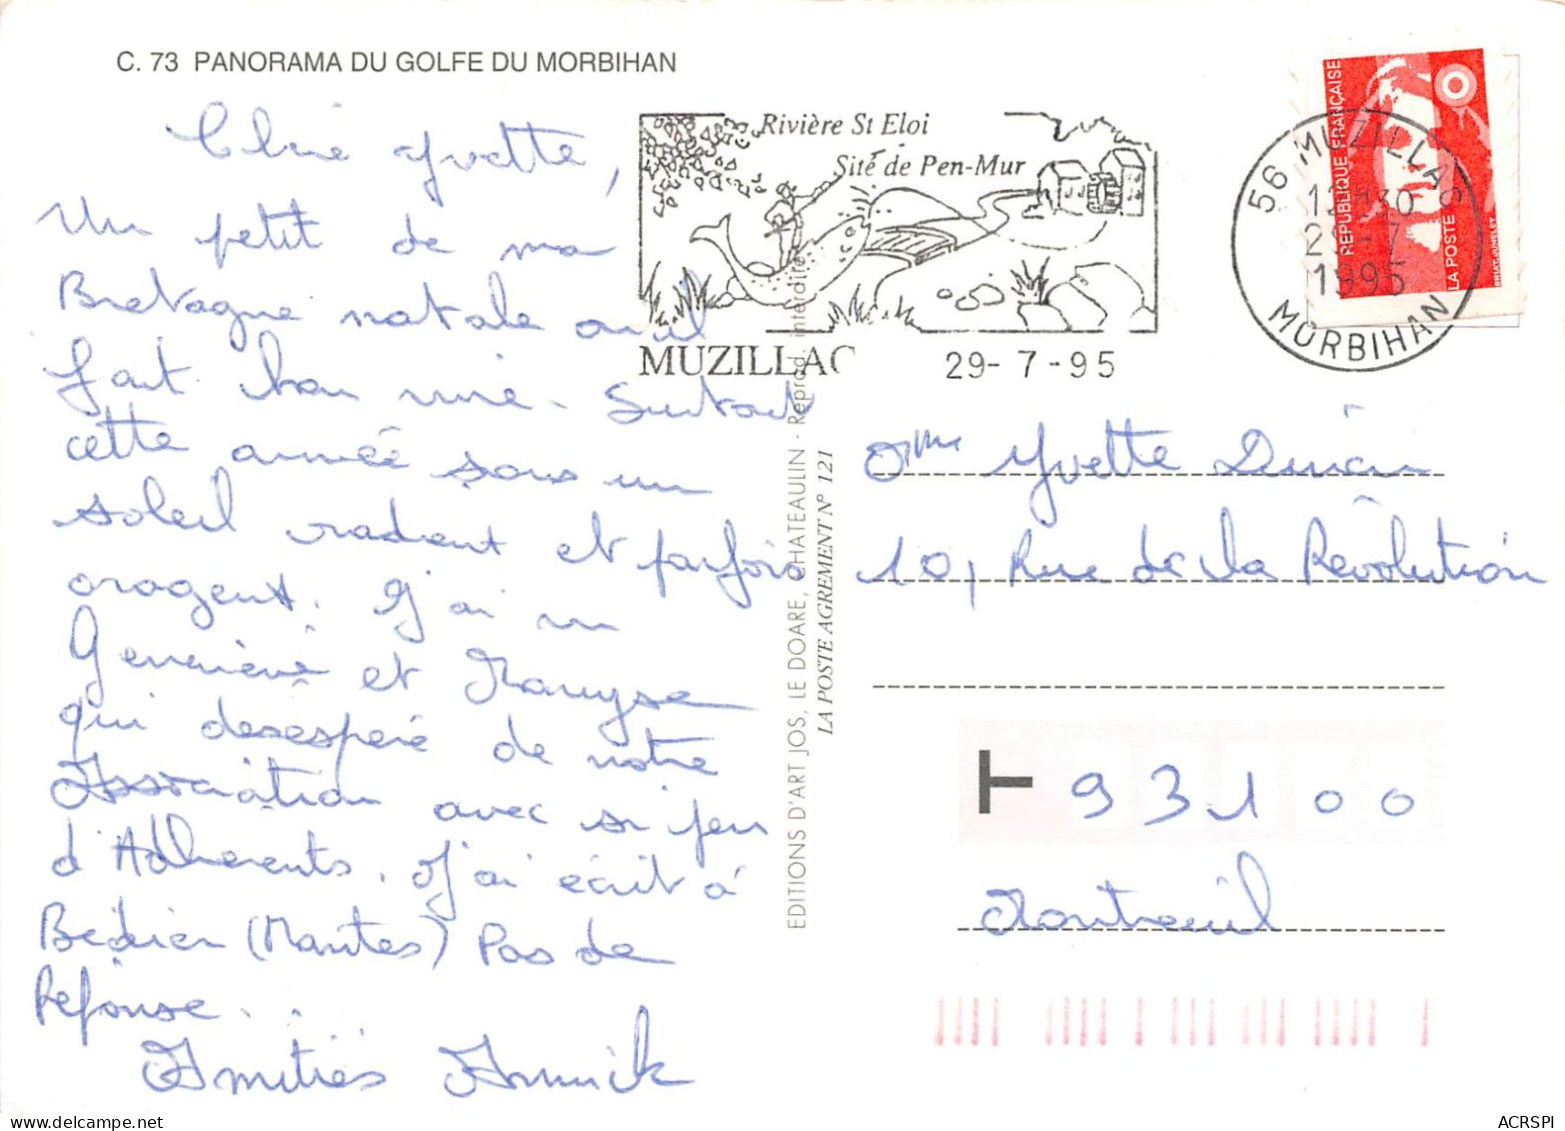 C. 73 PANORAMA DU GOLFE DU MORBIHAN
Chère Yvette,
Un petit de ma
Bretagne natale où il
fait bon vivre. Surtout
cette année sous un
soleil radient et parfois
oragent. J'ai vu
Geneviève et Maryse
qui desespéré de notre
Association avec si peu
d'Adherents. J'ai écrit à
Bédier (Mantes) Pas de
Réponse...
Amitiés Annick
Rivière St Eloi
Site de Pen-Mur
MUZILLAC 29-7-95
56 MUZILLAC
1995
MORBIHAN
REPUBLIQUE FRANÇAISE
LA POSTE
EDITIONS D'ART JOS, LE DOARE, CHATEAULIN - Reprod. interdite
LA POSTE AGREMENT N° 121
Mme Yvette
10, Rue de la Révolution
T 93100
Montreuil
ACRSPI